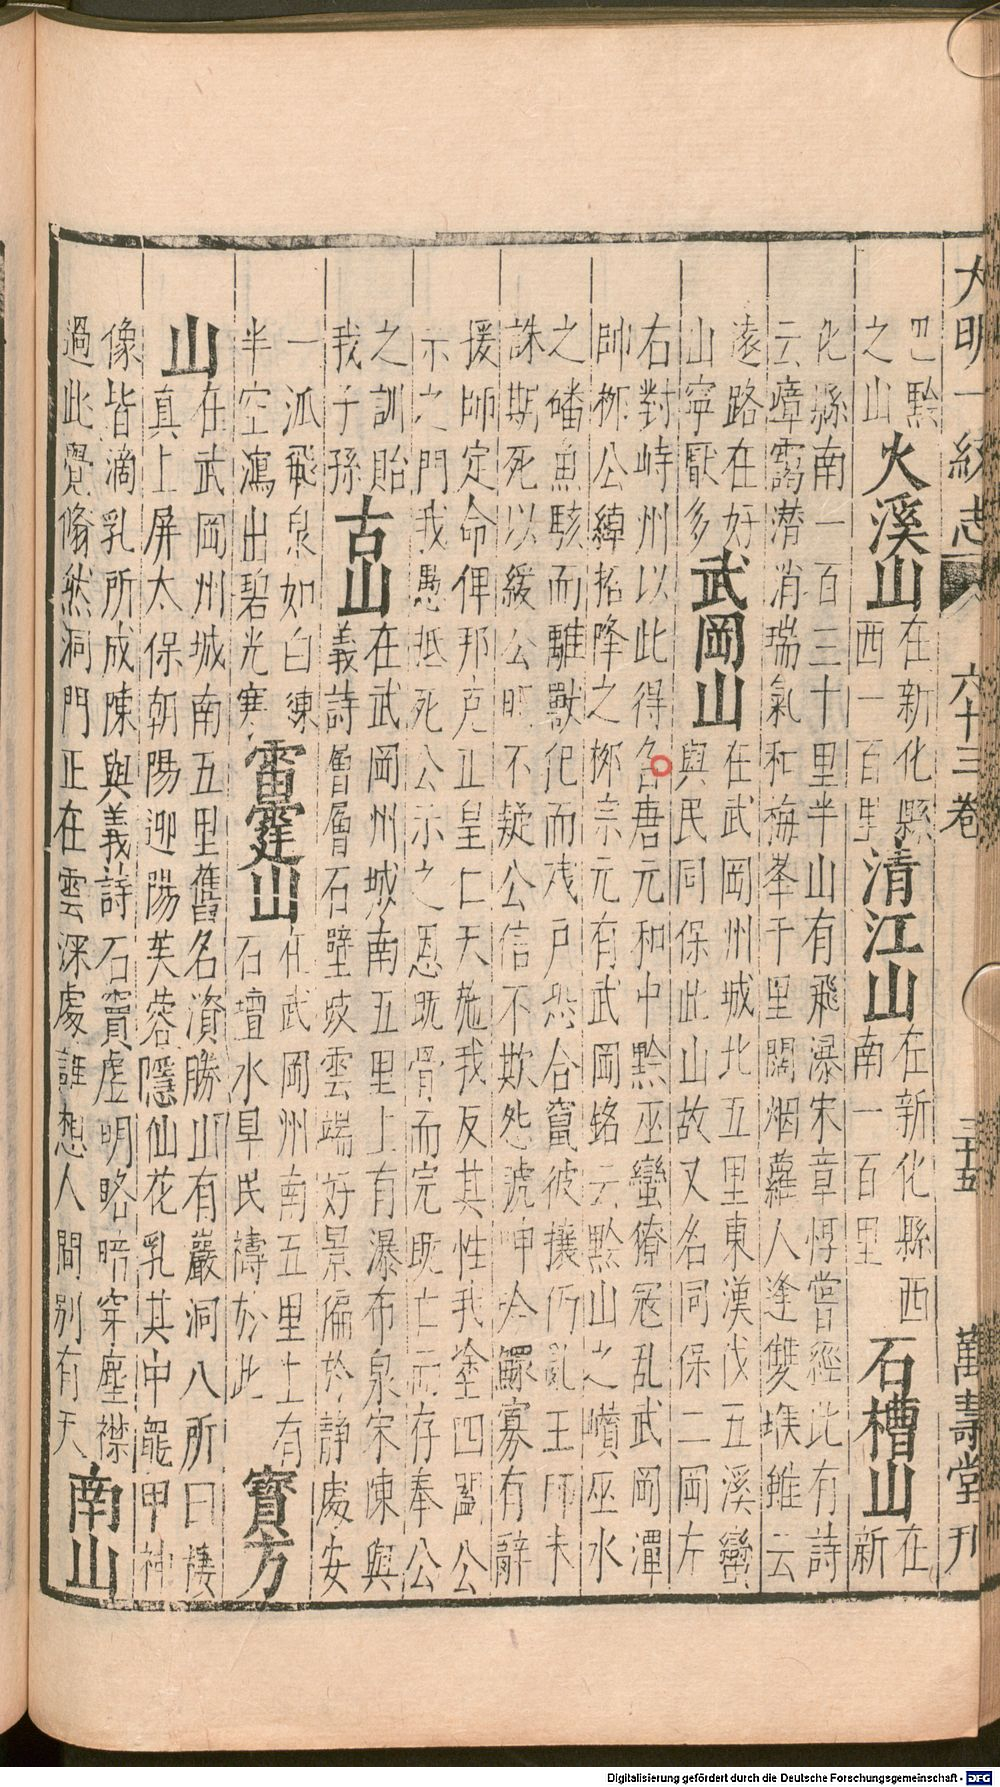 大明一統志 六十三卷 三十五 萬壽堂刊
巴黔
之山
火溪山
在新化縣
西一百里
清江山
在新化縣西
南一百里
石槽山
在
新
化縣南一百三十里半山有飛瀑宋章惇嘗經此有詩
云瘴靄潛消瑞氣和梅峯千里闊烟蘿人逢雙堠雖云
遠路在好
山寧厭多
武岡山
在武岡州城北五里東漢伐五溪蠻
與民同保此山故又名同保二岡左
右對峙州以此得名唐元和中黔巫蠻獠冦亂武岡潭
帥柳公綽招降之柳宗元有武岡銘云黔山之巑巫水
之磻魚駭而離獸犯而殘戶恐合竄彼攘仍亂王師未
誅期死以緩公明不疑公信不欺怨號呻吟鰥寡有辭
援師定命俾邦克正皇仁天施我反其性我塗四闢公
示之門我愚抵死公示之恩既骨而完既亡而存奉公
之訓貽
我子孫
古山
在武岡州城南五里上有瀑布泉宋陳與
義詩層層石壁歧雲端好景偏於静處安
一派飛泉如白練
半空瀉出碧光寒
雷霆山
在武岡州南五里上有
石壇水旱民禱於此
寳方
山
在武岡州城南五里舊名資勝山有巖洞八所曰棲
真上屏太保朝陽迎陽芙蓉隱仙花乳其中龍甲神
像皆滴乳所成陳與義詩石竇虛明略暗穿塵襟
過此覺翛然洞門正在雲深處誰想人間别有天
南山
Digitalisierung gefördert durch die Deutsche Forschungsgemeinschaft - DFG